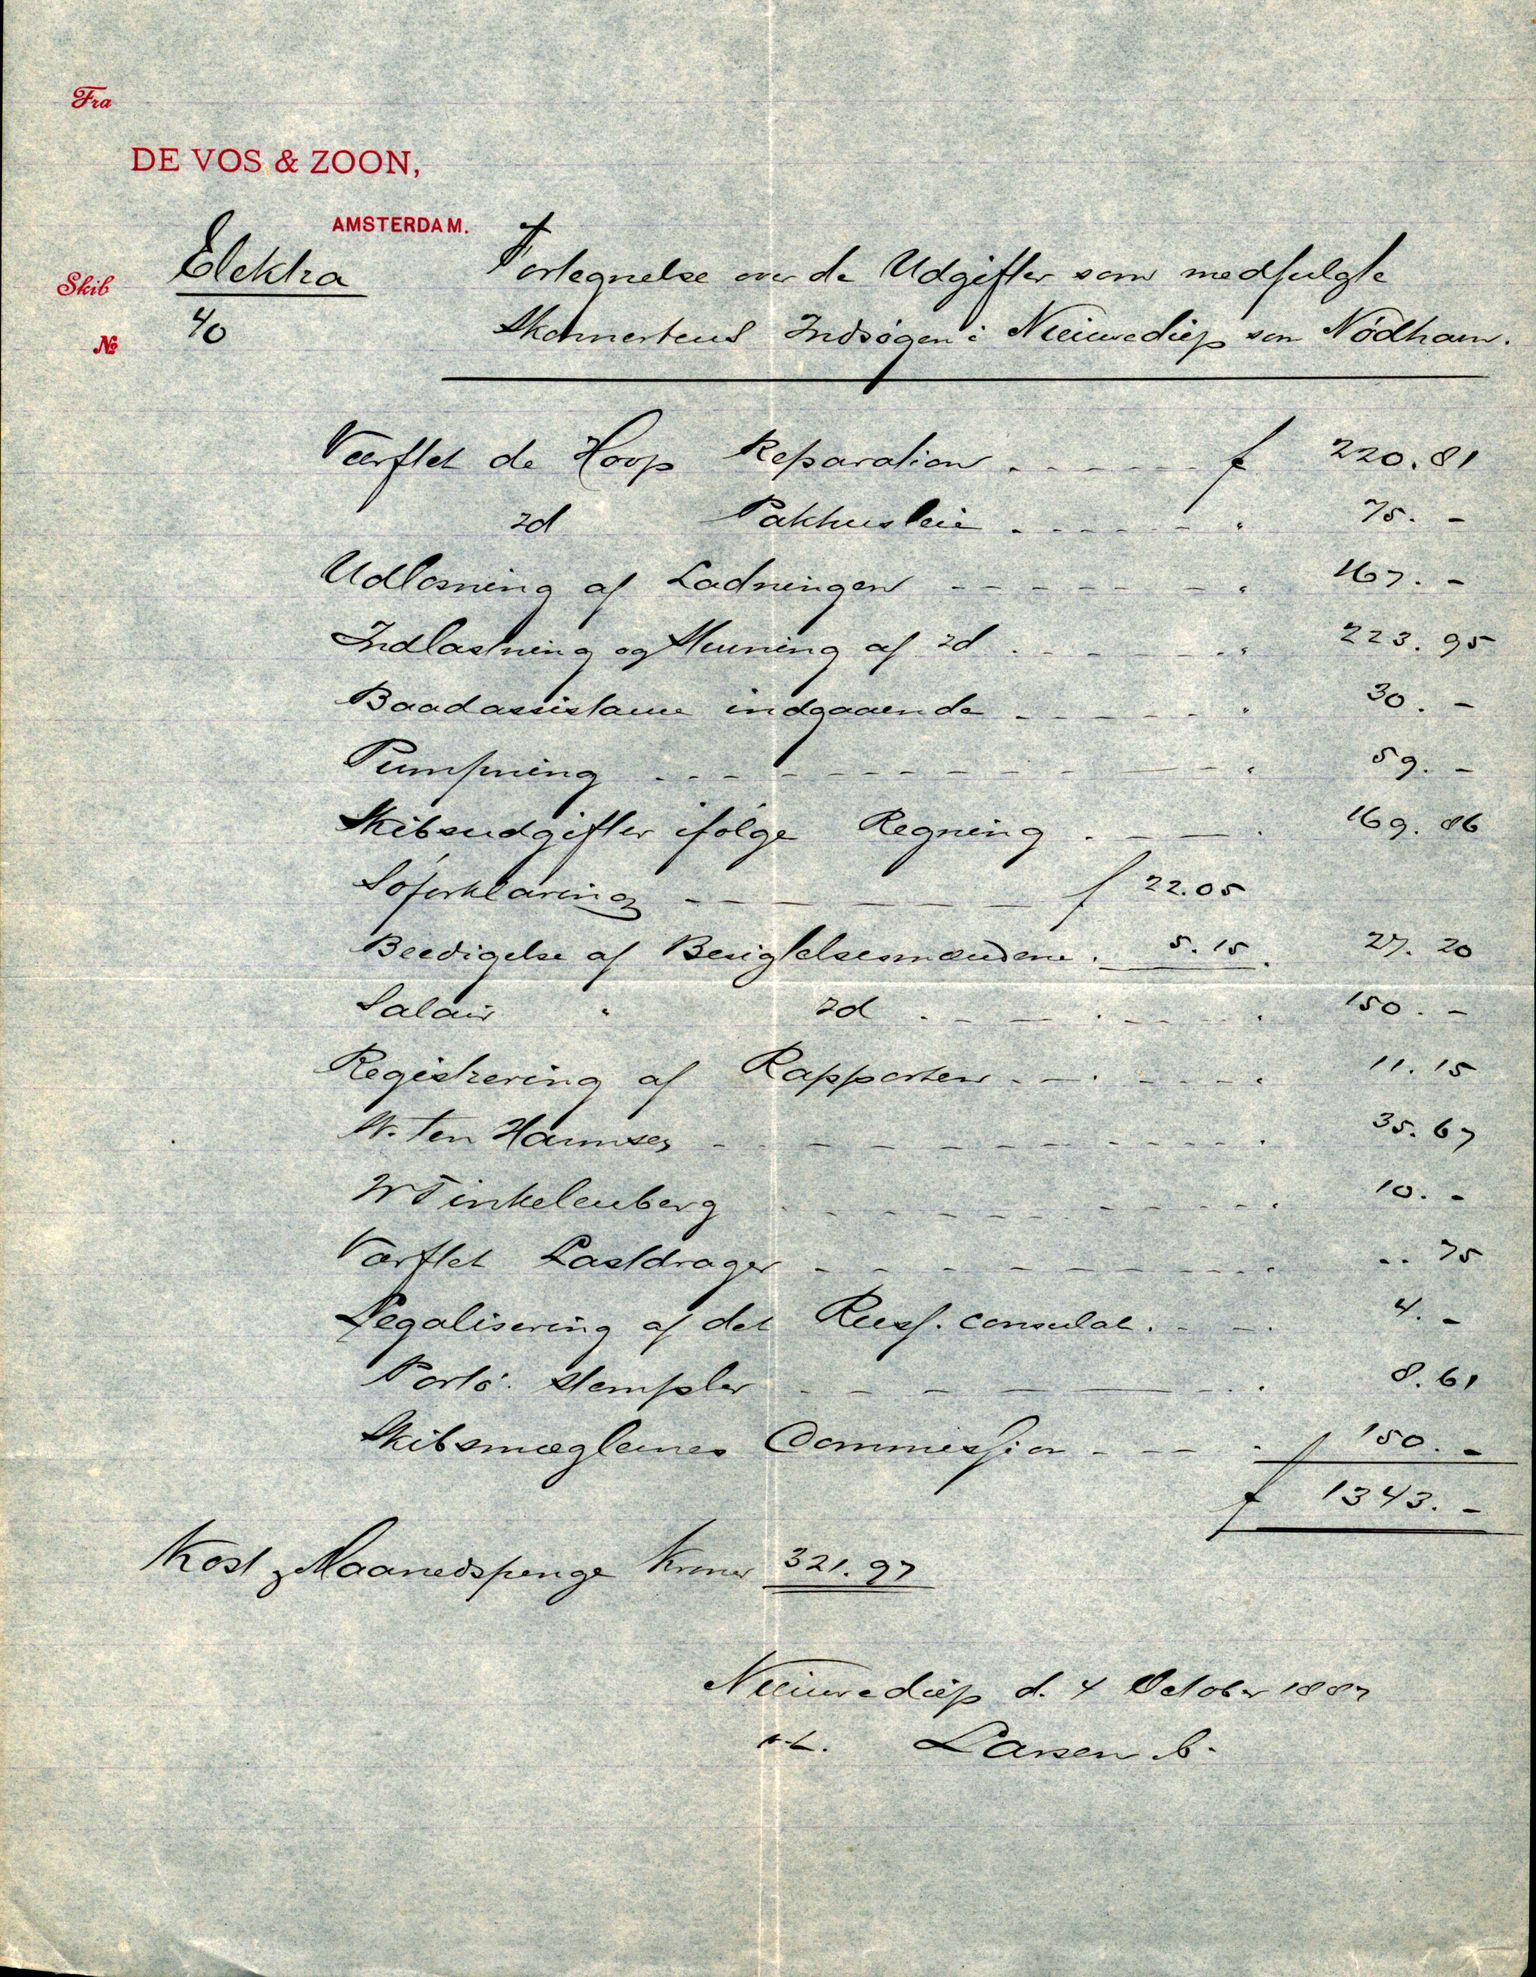 Fra
DE VOS & ZOON,
AMSTERDAM.
Skib Elektra
№ 40
Fortegnelse over de Udgifter som medfulgte
Skonnertens Indsøgen i Nieuwediep som Nödhavn.
Værftet de Hoop Reparation f 220.81
id Pakhusleie " 75.-
Udlosning af Ladningen " 167.-
Indlastning og Stuvning af id " 223.95
Baadassistance indgaaende " 30.-
Pumpning " 59.-
Skibsudgifter ifølge Regning " 169.86
Söforklaring f 22.05
Beedigelse af Besigtelsesmændene " 5.15 " 27.20
Salair " id " 150.-
Registrering af Rapporten " 11.15
W. Ten Harmsen " 35.67
W Finkelenberg " 10.-
Værftet Lastdrager " -.75
Legalisering af det Russ. Consulat " 4.-
Porto. Stempler " 8.61
Skibsmæglernes Commission " 150.-
f 1343.-
Kost & Maanedspenge Kroner 321.97
Nieuwediep d. 4 October 1887
Larsen